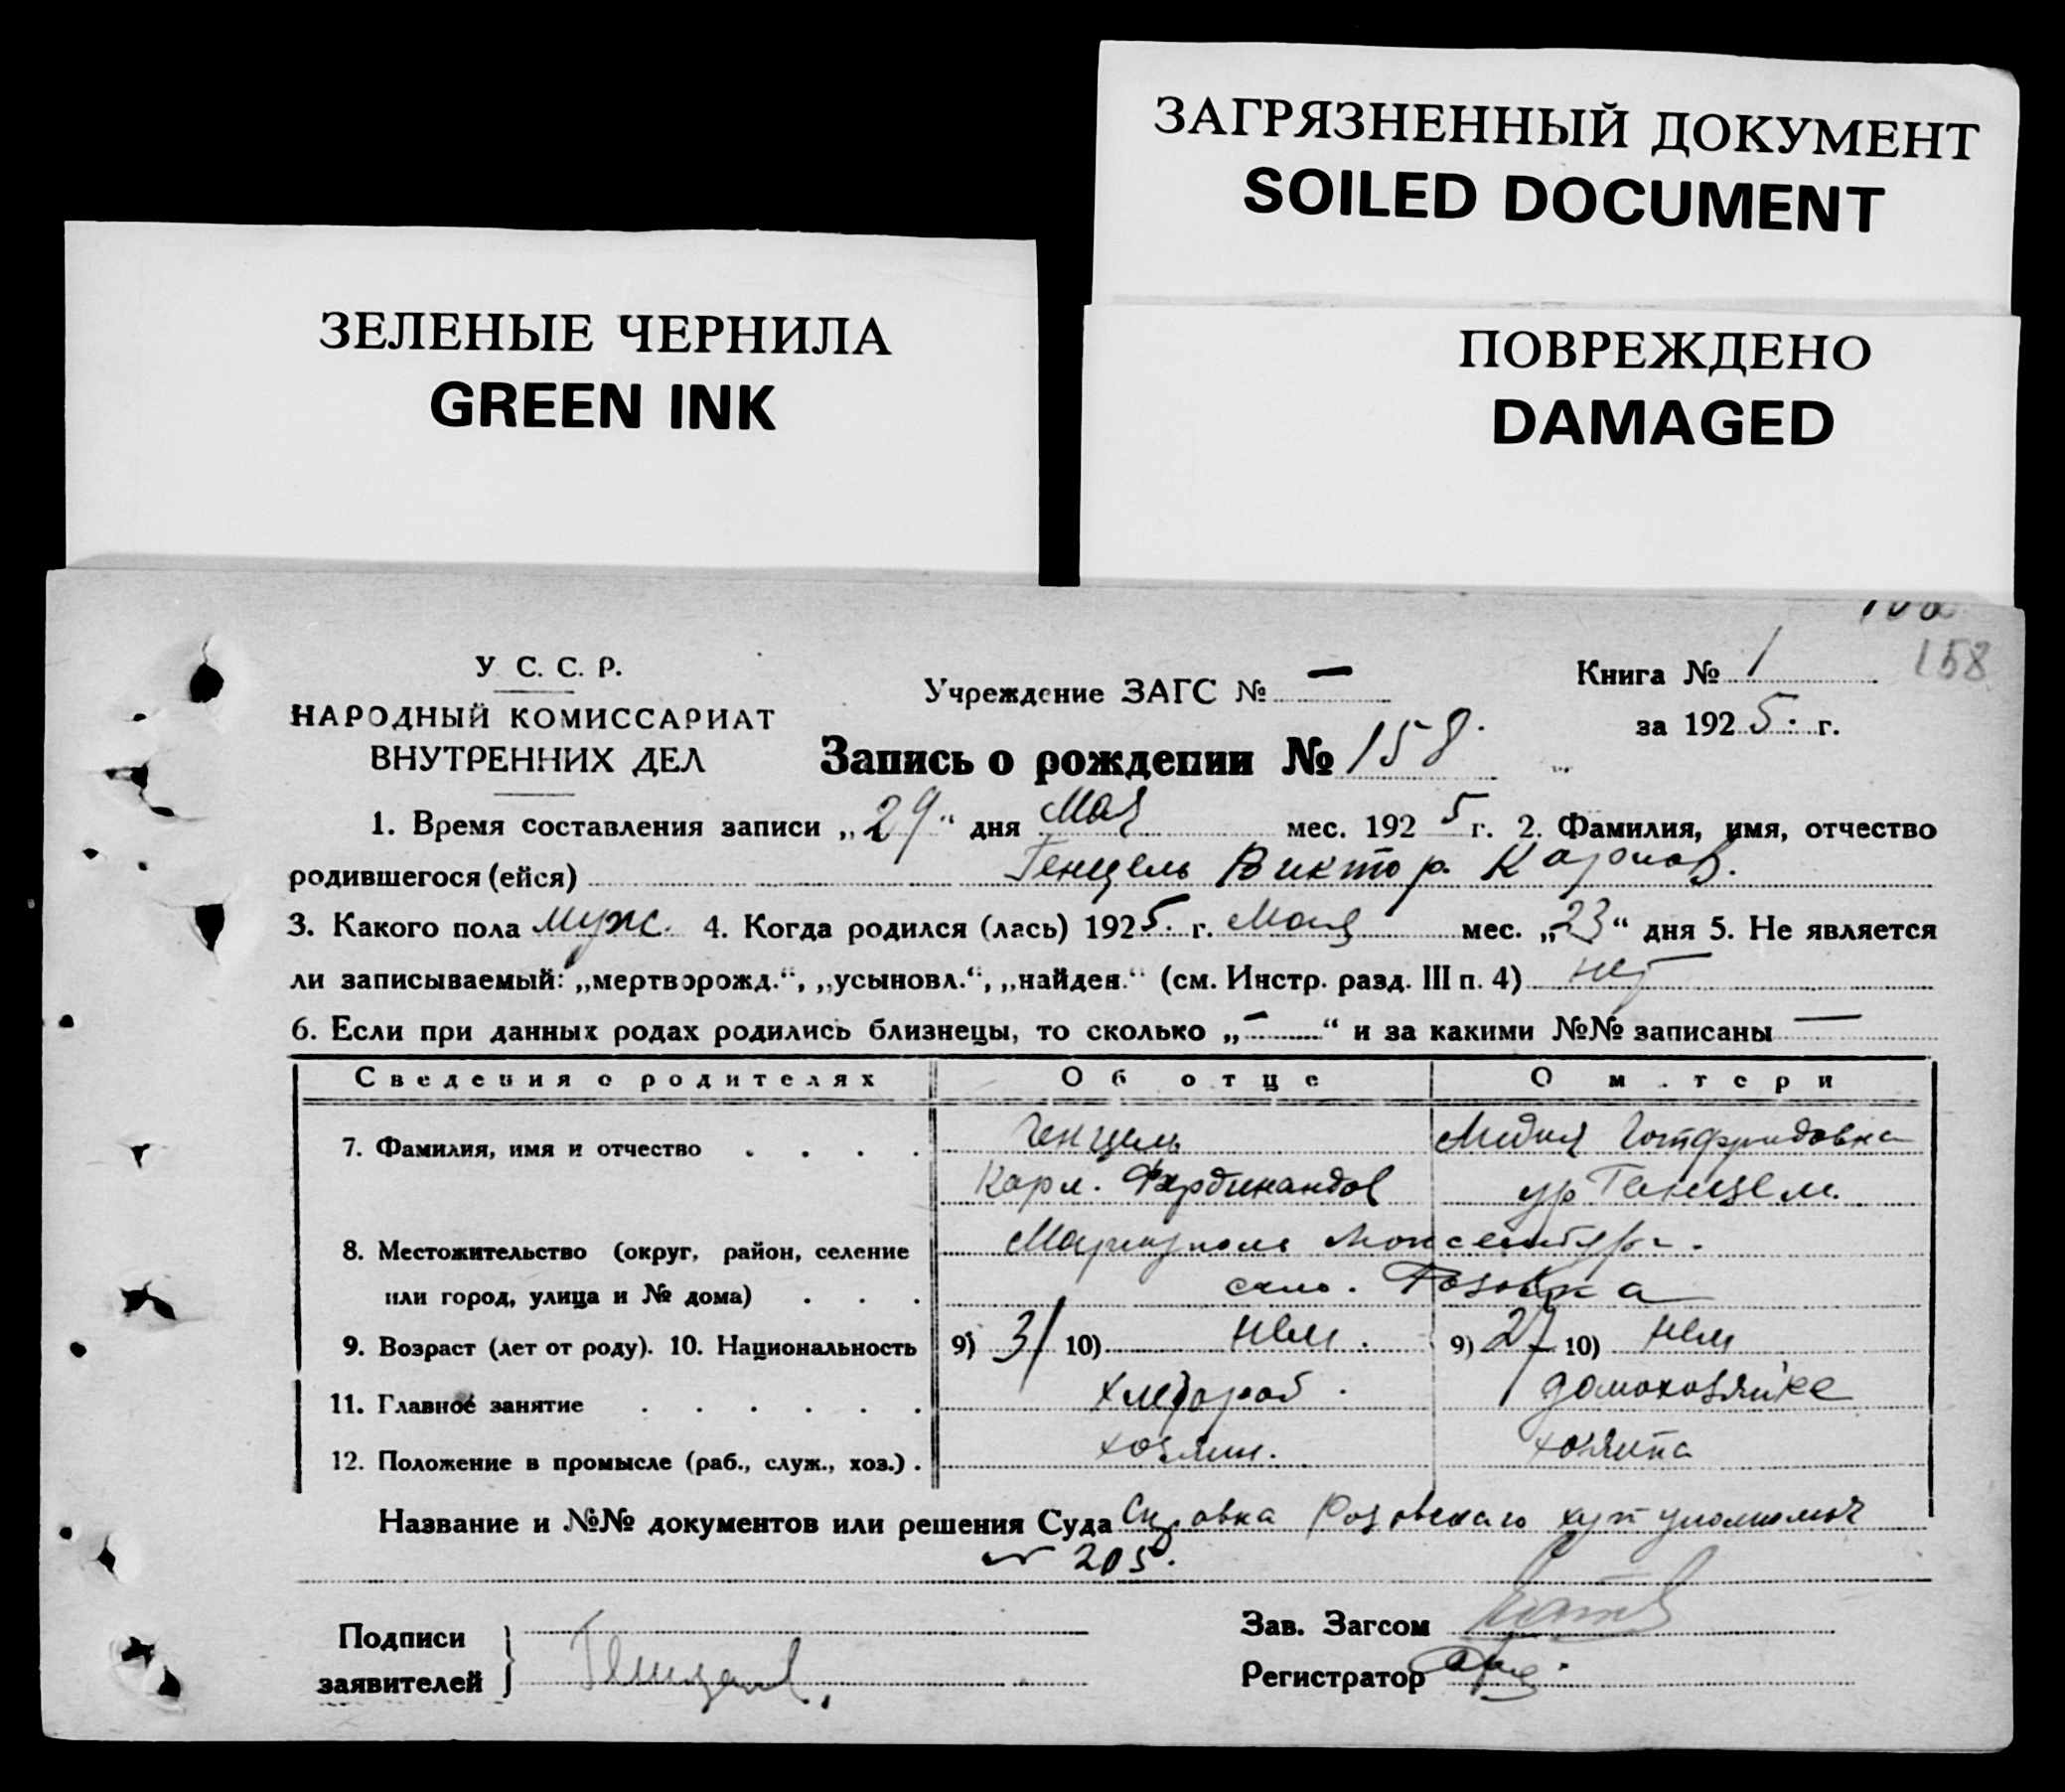 ЗАГРЯЗНЕННЫЙ ДОКУМЕНТ
SOILED DOCUMENT
ЗЕЛЕНЫЕ ЧЕРНИЛА
GREEN INK
ПОВРЕЖДЕНО
DAMAGED
158
У С. С. Р.
НАРОДНЫЙ КОМИССАРИАТ
ВНУТРЕННИХ ДЕЛ
Учреждение ЗАГС № —
Книга № 1
за 1925 г.
Запись о рождении № 158.
1. Время составления записи „29“ дня Мая мес. 1925 г. 2. Фамилия, имя, отчество
родившегося (ейся) Генцель Виктор Карлов.
3. Какого пола муж. 4. Когда родился (лась) 1925. г. Мая мес. „23“ дня 5. Не является
ли записываемый: „мертворожд.“, „усыновл.“, „найден.“ (см. Инстр. разд. III п. 4) нет
6. Если при данных родах родились близнецы, то сколько „—“ и за какими №№ записаны —
Сведения о родителях Об отце О м.тери
7. Фамилия, имя и отчество Генцель Лидия Готфридовна
Карл. Фердинандов ур Генцель.
8. Местожительство (округ, район, селение Мариуполь
или город, улица и № дома) село. Розовка
9. Возраст (лет от роду). 10. Национальность 9) 31 10) нем. 9) 27 10) нем
11. Главное занятие хлебороб. домохозяйка
12. Положение в промысле (раб., служ., хоз.). хозяин. хозяйка
Название и №№ документов или решения Суда Справка Розовскаго
№ 205.
Подписи
заявителей
Зав. Загсом
Регистратор